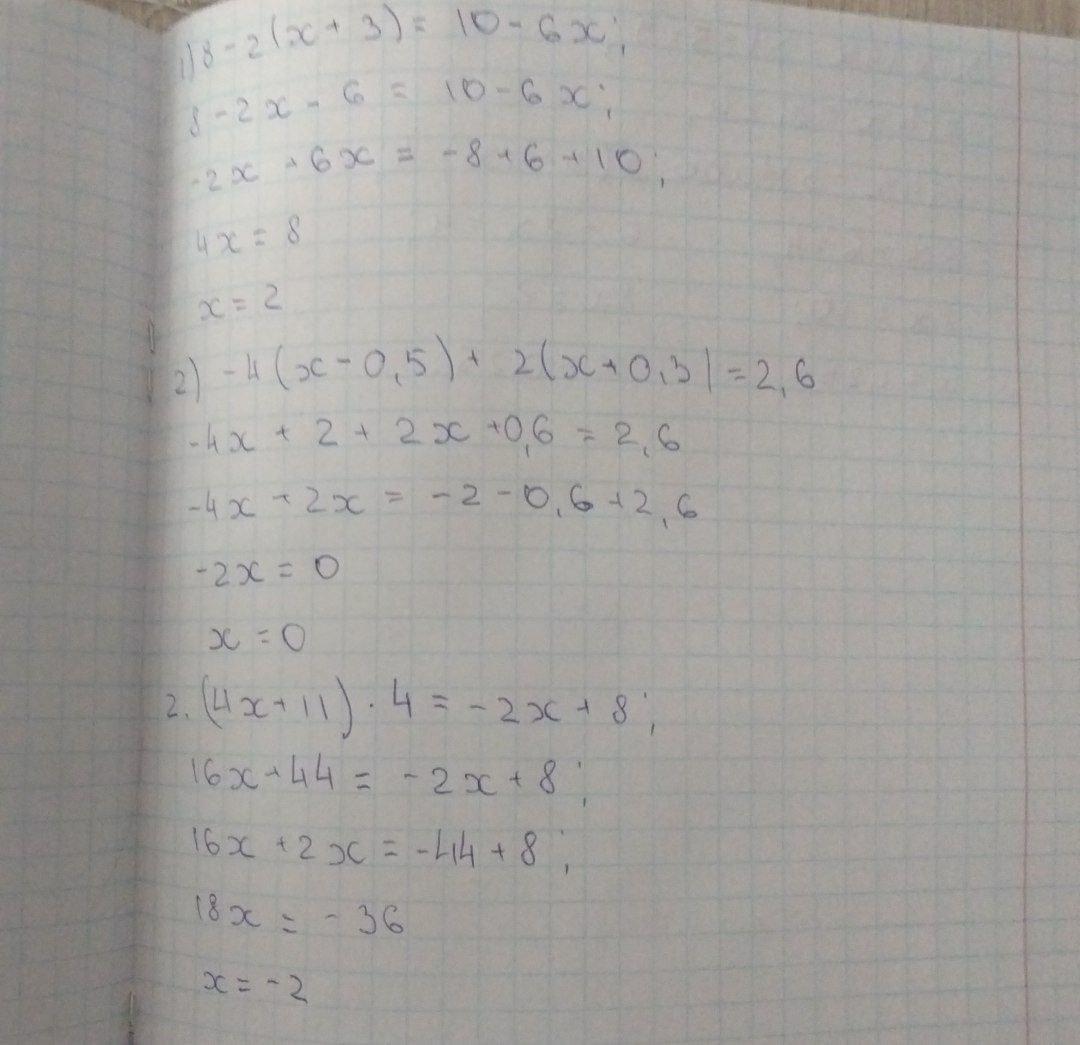 1) 8 - 2(x + 3) = 10 - 6x;
8 - 2x - 6 = 10 - 6x;
-2x + 6x = -8 + 6 + 10;
4x = 8
x = 2
2) -4(x - 0,5) + 2(x + 0,3) = 2,6
-4x + 2 + 2x + 0,6 = 2,6
-4x + 2x = -2 - 0,6 + 2,6
-2x = 0
x = 0
2. (4x + 11) · 4 = -2x + 8;
16x + 44 = -2x + 8;
16x + 2x = -44 + 8;
18x = -36
x = -2